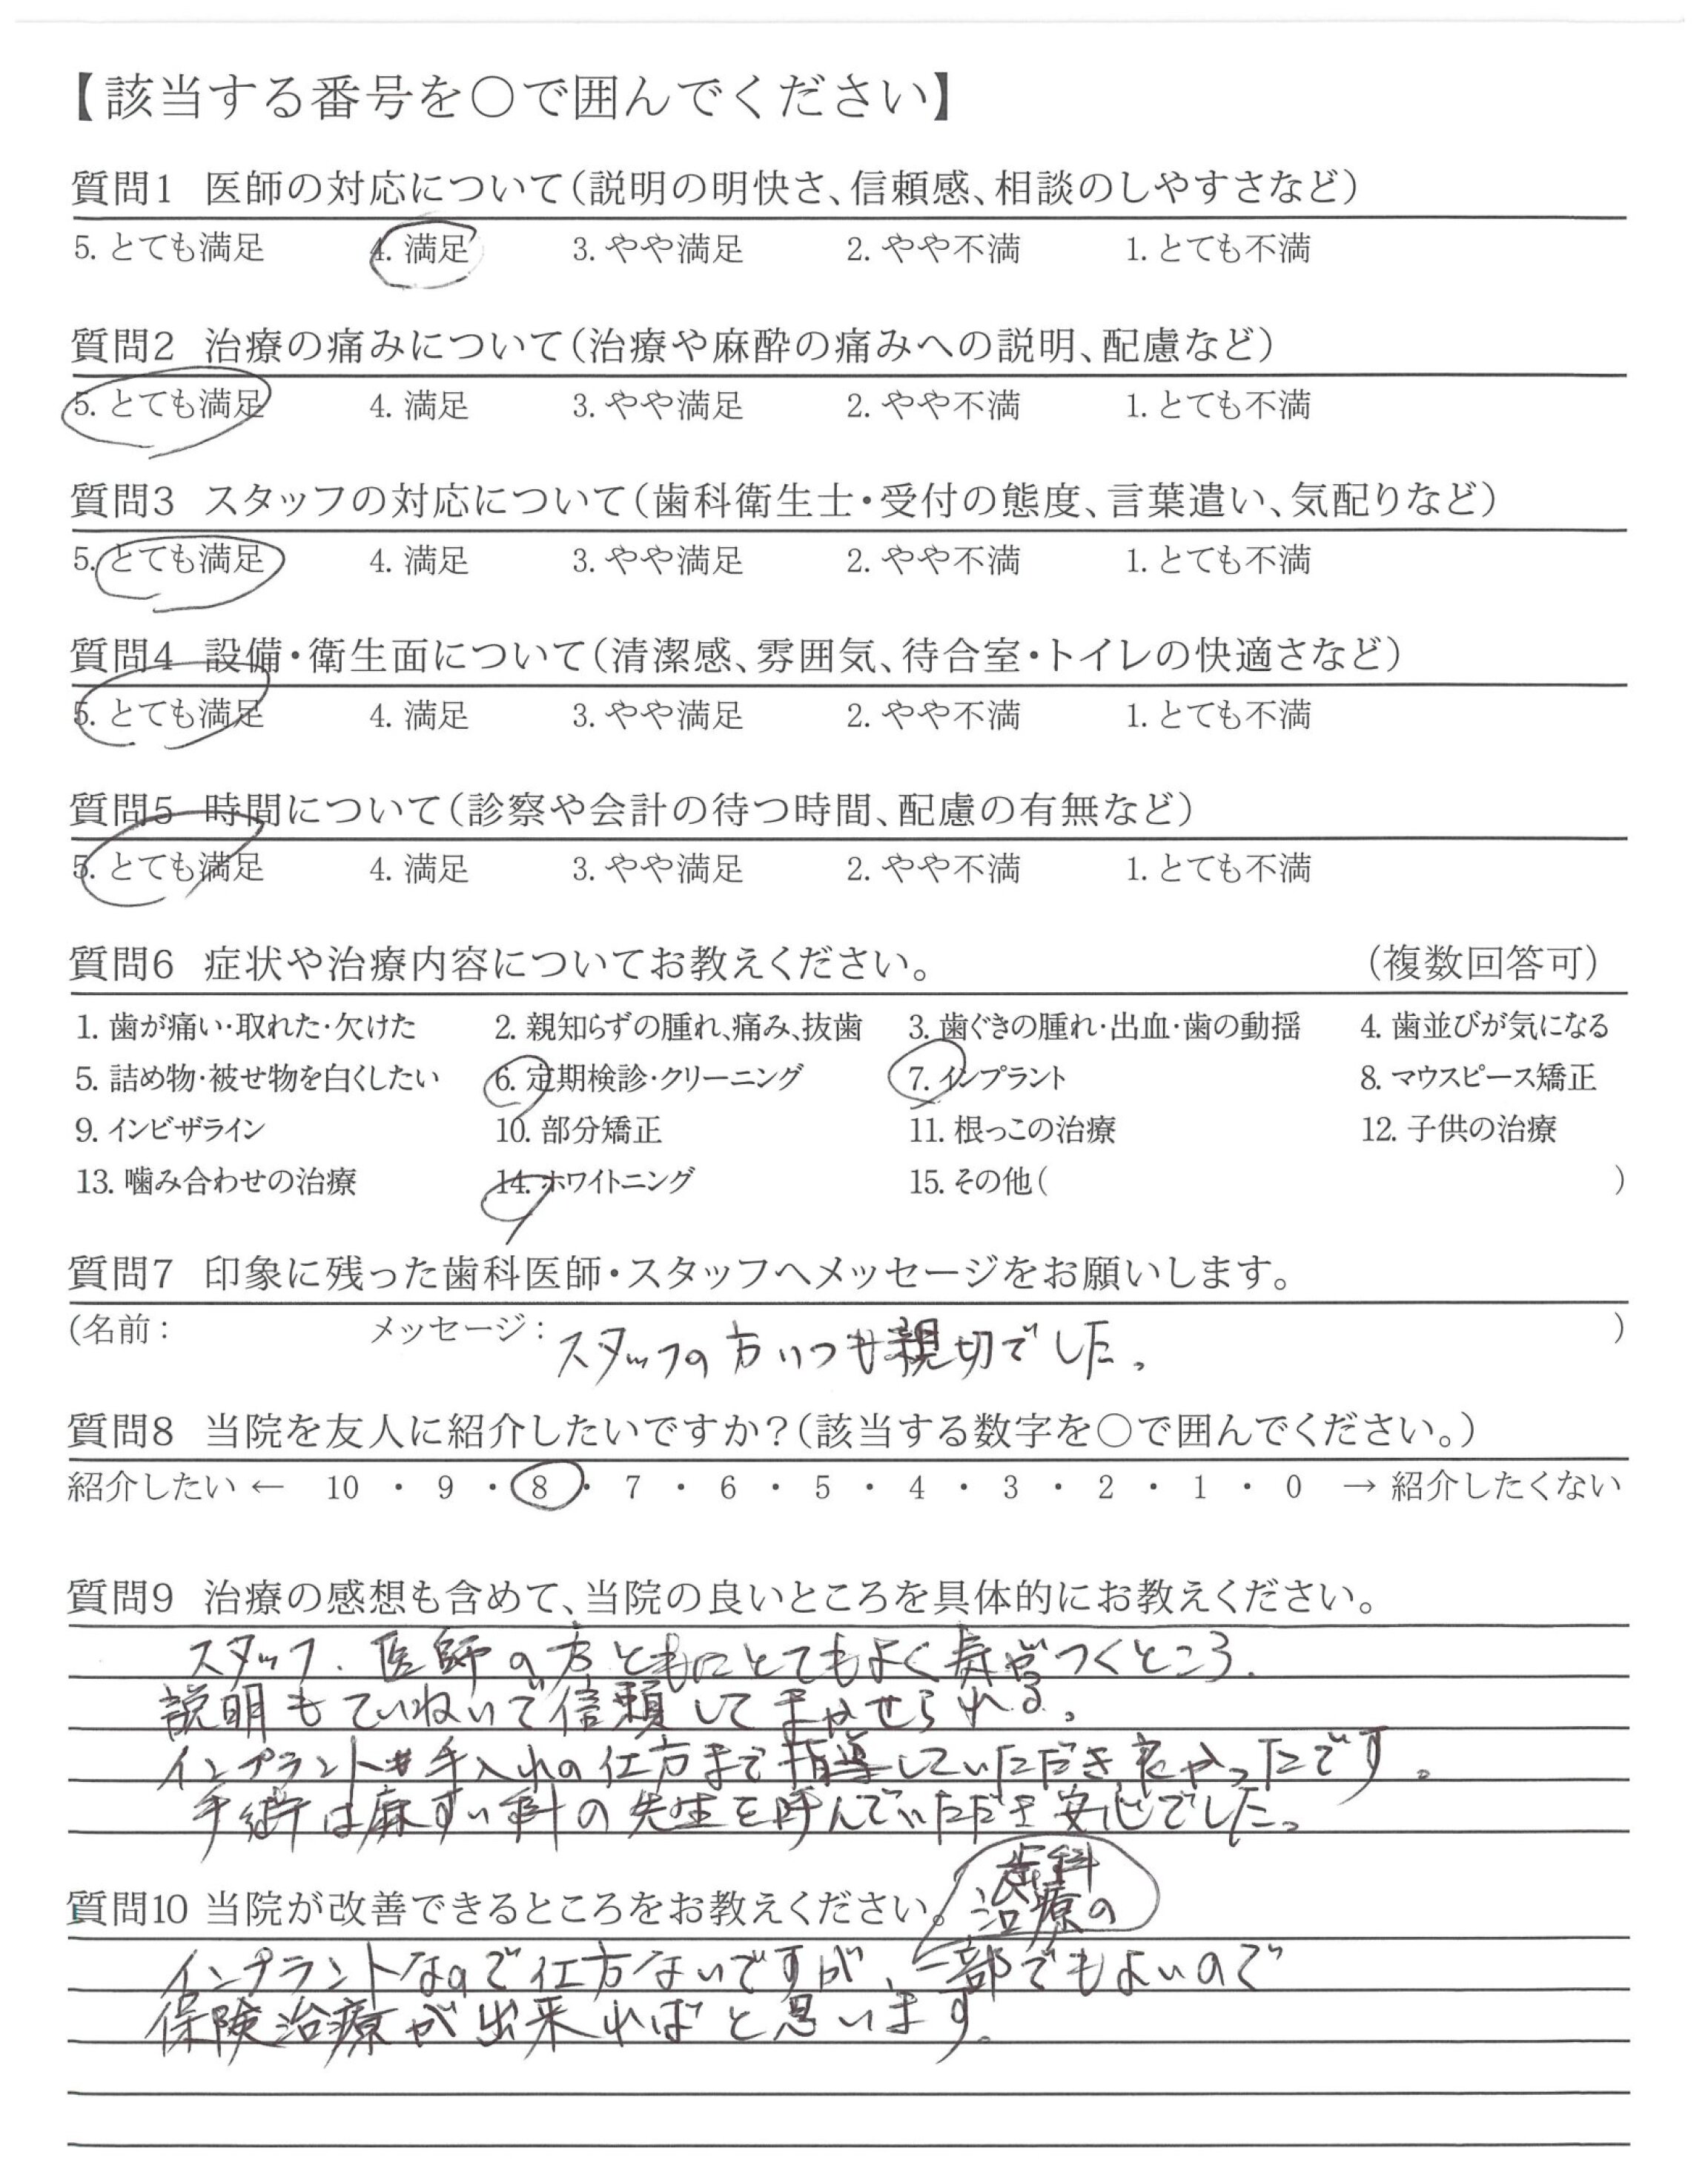 【該当する番号を○で囲んでください】
質問1 医師の対応について(説明の明快さ、信頼感、相談のしやすさなど)
5. とても満足 4. 満足 3. やや満足 2. やや不満 1. とても不満
質問2 治療の痛みについて(治療や麻酔の痛みへの説明、配慮など)
5. とても満足 4. 満足 3. やや満足 2. やや不満 1. とても不満
質問3 スタッフの対応について(歯科衛生士・受付の態度、言葉遣い、気配りなど)
5. とても満足 4. 満足 3. やや満足 2. やや不満 1. とても不満
質問4 設備・衛生面について(清潔感、雰囲気、待合室・トイレの快適さなど)
5. とても満足 4. 満足 3. やや満足 2. やや不満 1. とても不満
質問5 時間について(診察や会計の待つ時間、配慮の有無など)
5. とても満足 4. 満足 3. やや満足 2. やや不満 1. とても不満
質問6 症状や治療内容についてお教えください。 (複数回答可)
1. 歯が痛い・取れた・欠けた 2. 親知らずの腫れ、痛み、抜歯 3. 歯ぐきの腫れ・出血・歯の動揺 4. 歯並びが気になる
5. 詰め物・被せ物を白くしたい 6. 定期検診・クリーニング 7. インプラント 8. マウスピース矯正
9. インビザライン 10. 部分矯正 11. 根っこの治療 12. 子供の治療
13. 噛み合わせの治療 14. ホワイトニング 15. その他( )
質問7 印象に残った歯科医師・スタッフへメッセージをお願いします。
(名前: メッセージ: スタッフの方いつも親切でした。 )
質問8 当院を友人に紹介したいですか?(該当する数字を○で囲んでください。)
紹介したい ← 10 ・ 9 ・ 8 ・ 7 ・ 6 ・ 5 ・ 4 ・ 3 ・ 2 ・ 1 ・ 0 → 紹介したくない
質問9 治療の感想も含めて、当院の良いところを具体的にお教えください。
スタッフ、医師の方ともにとてもよく気がつくところ。
説明もていねいで信頼してまかせられる。
インプラント手入れの仕方まで指導していただき よかったです。
手術は麻すい科の先生を呼んでいただき安心でした。
質問10 当院が改善できるところをお教えください。
歯科
治療の
インプラントなので仕方ないですが、一部でもよいので
保険治療が出来ればと思います。